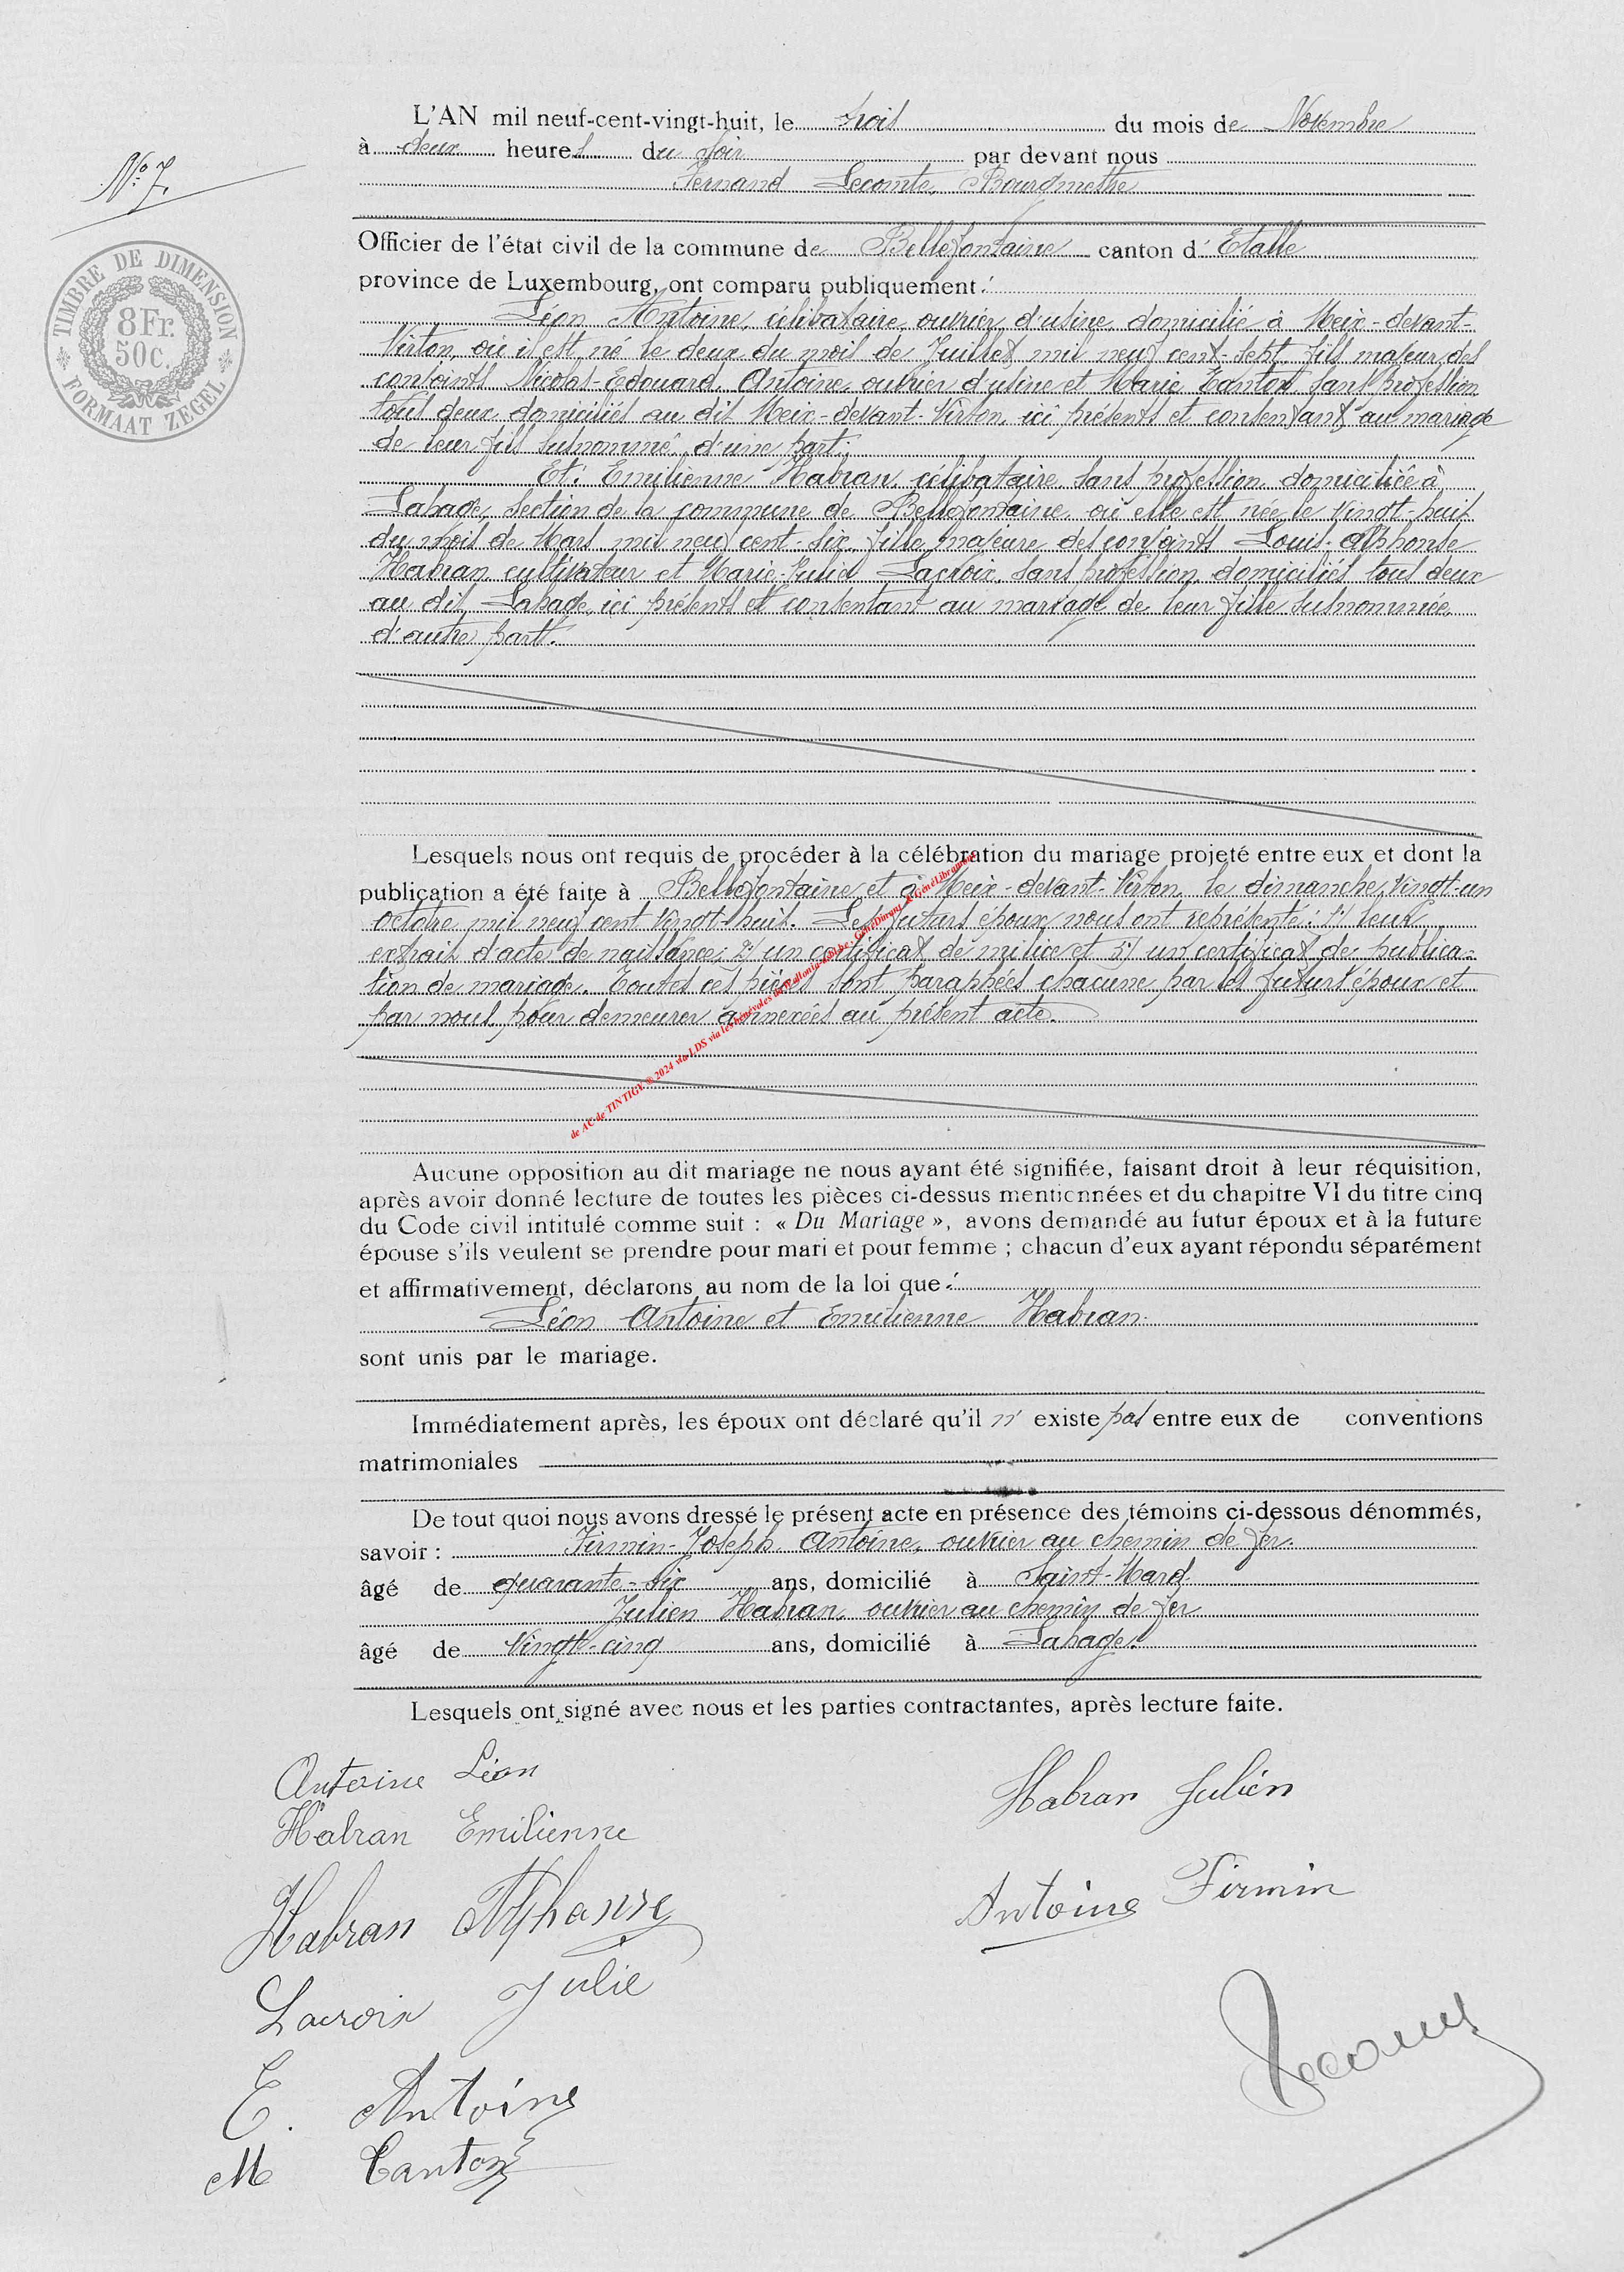 L'AN mil neuf-cent-vingt-huit, le trois du mois de Novembre
à deux heures du soir par devant nous
Fernand Lecomte, Bourgmestre
N° 7.
TIMBRE DE DIMENSION
8 Fr.
50 c.
FORMAAT ZEGEL
Officier de l'état civil de la commune de Bellefontaine canton d' Etalle
province de Luxembourg, ont comparu publiquement :
Léon Antoine, célibataire, ouvrier d'usine, domicilié à Meix-devant-
Virton, où il est né le deux du mois de Juillet mil neuf cent-sept, fils majeur des
conjoints Nicolas-Edouard Antoine, ouvrier d'usine et Marie Canton sans profession,
tous deux domiciliés au dit Meix-devant-Virton, ici présents et consentant au mariage
de leur fils susnommé, d'une part;
Et: Emilienne Habran, célibataire, sans profession, domiciliée à
Lahage, section de la commune de Bellefontaine, où elle est née le vingt-huit
du mois de Mars mil neuf cent-six, fille majeure des conjoints Louis-Alphonse
Habran, cultivateur et Marie-Julie Lacroix, sans profession, domiciliés tous deux
au dit Lahage, ici présents et consentant au mariage de leur fille susnommée,
d'autre part.
Lesquels nous ont requis de procéder à la célébration du mariage projeté entre eux et dont la
publication a été faite à Bellefontaine et à Meix-devant-Virton, le dimanche, vingt-un
octobre mil neuf cent vingt-huit. Les futurs époux nous ont représenté: 1°/ leur
extrait d'acte de naissance; 2°/ un certificat de milice et 3°/ un certificat de publica-
tion de mariage. Toutes ces pièces sont paraphées chacune par les futurs époux et
par nous pour demeurer annexées au présent acte.
de AC de TINTIGY ® 2024 via LDS via les bénévoles de
Aucune opposition au dit mariage ne nous ayant été signifiée, faisant droit à leur réquisition,
après avoir donné lecture de toutes les pièces ci-dessus mentionnées et du chapitre VI du titre cinq
du Code civil intitulé comme suit : « Du Mariage », avons demandé au futur époux et à la future
épouse s'ils veulent se prendre pour mari et pour femme ; chacun d'eux ayant répondu séparément
et affirmativement, déclarons au nom de la loi que :
Léon Antoine et Emilienne Habran
sont unis par le mariage.
Immédiatement après, les époux ont déclaré qu'il n' existe pas entre eux de conventions
matrimoniales
De tout quoi nous avons dressé le présent acte en présence des témoins ci-dessous dénommés,
savoir : Firmin-Joseph Antoine, ouvrier au chemin de fer.
âgé de quarante-six ans, domicilié à Saint-Mard
Julien Habran, ouvrier au chemin de fer
âgé de vingt-cinq ans, domicilié à Lahage.
Lesquels ont signé avec nous et les parties contractantes, après lecture faite.
Antoine Léon
Habran Julien
Habran Emilienne
Habran Alphonse
Antoine Firmin
Lacroix Julie
Lecomte
E. Antoine
M Canton